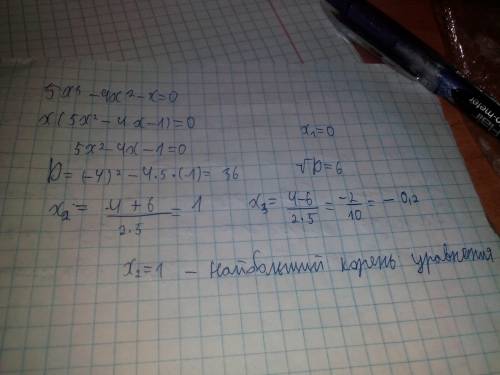 5x³ - 4x² - x = 0
x(5x² - 4x - 1) = 0
x₁ = 0
5x² - 4x - 1 = 0
D = (-4)² - 4·5·(-1) = 36
√D = 6
x₂ = (4+6)/(2·5) = 1
x₃ = (4-6)/(2·5) = -2/10 = -0,2
x₂ = 1 - наибольший корень уравнения